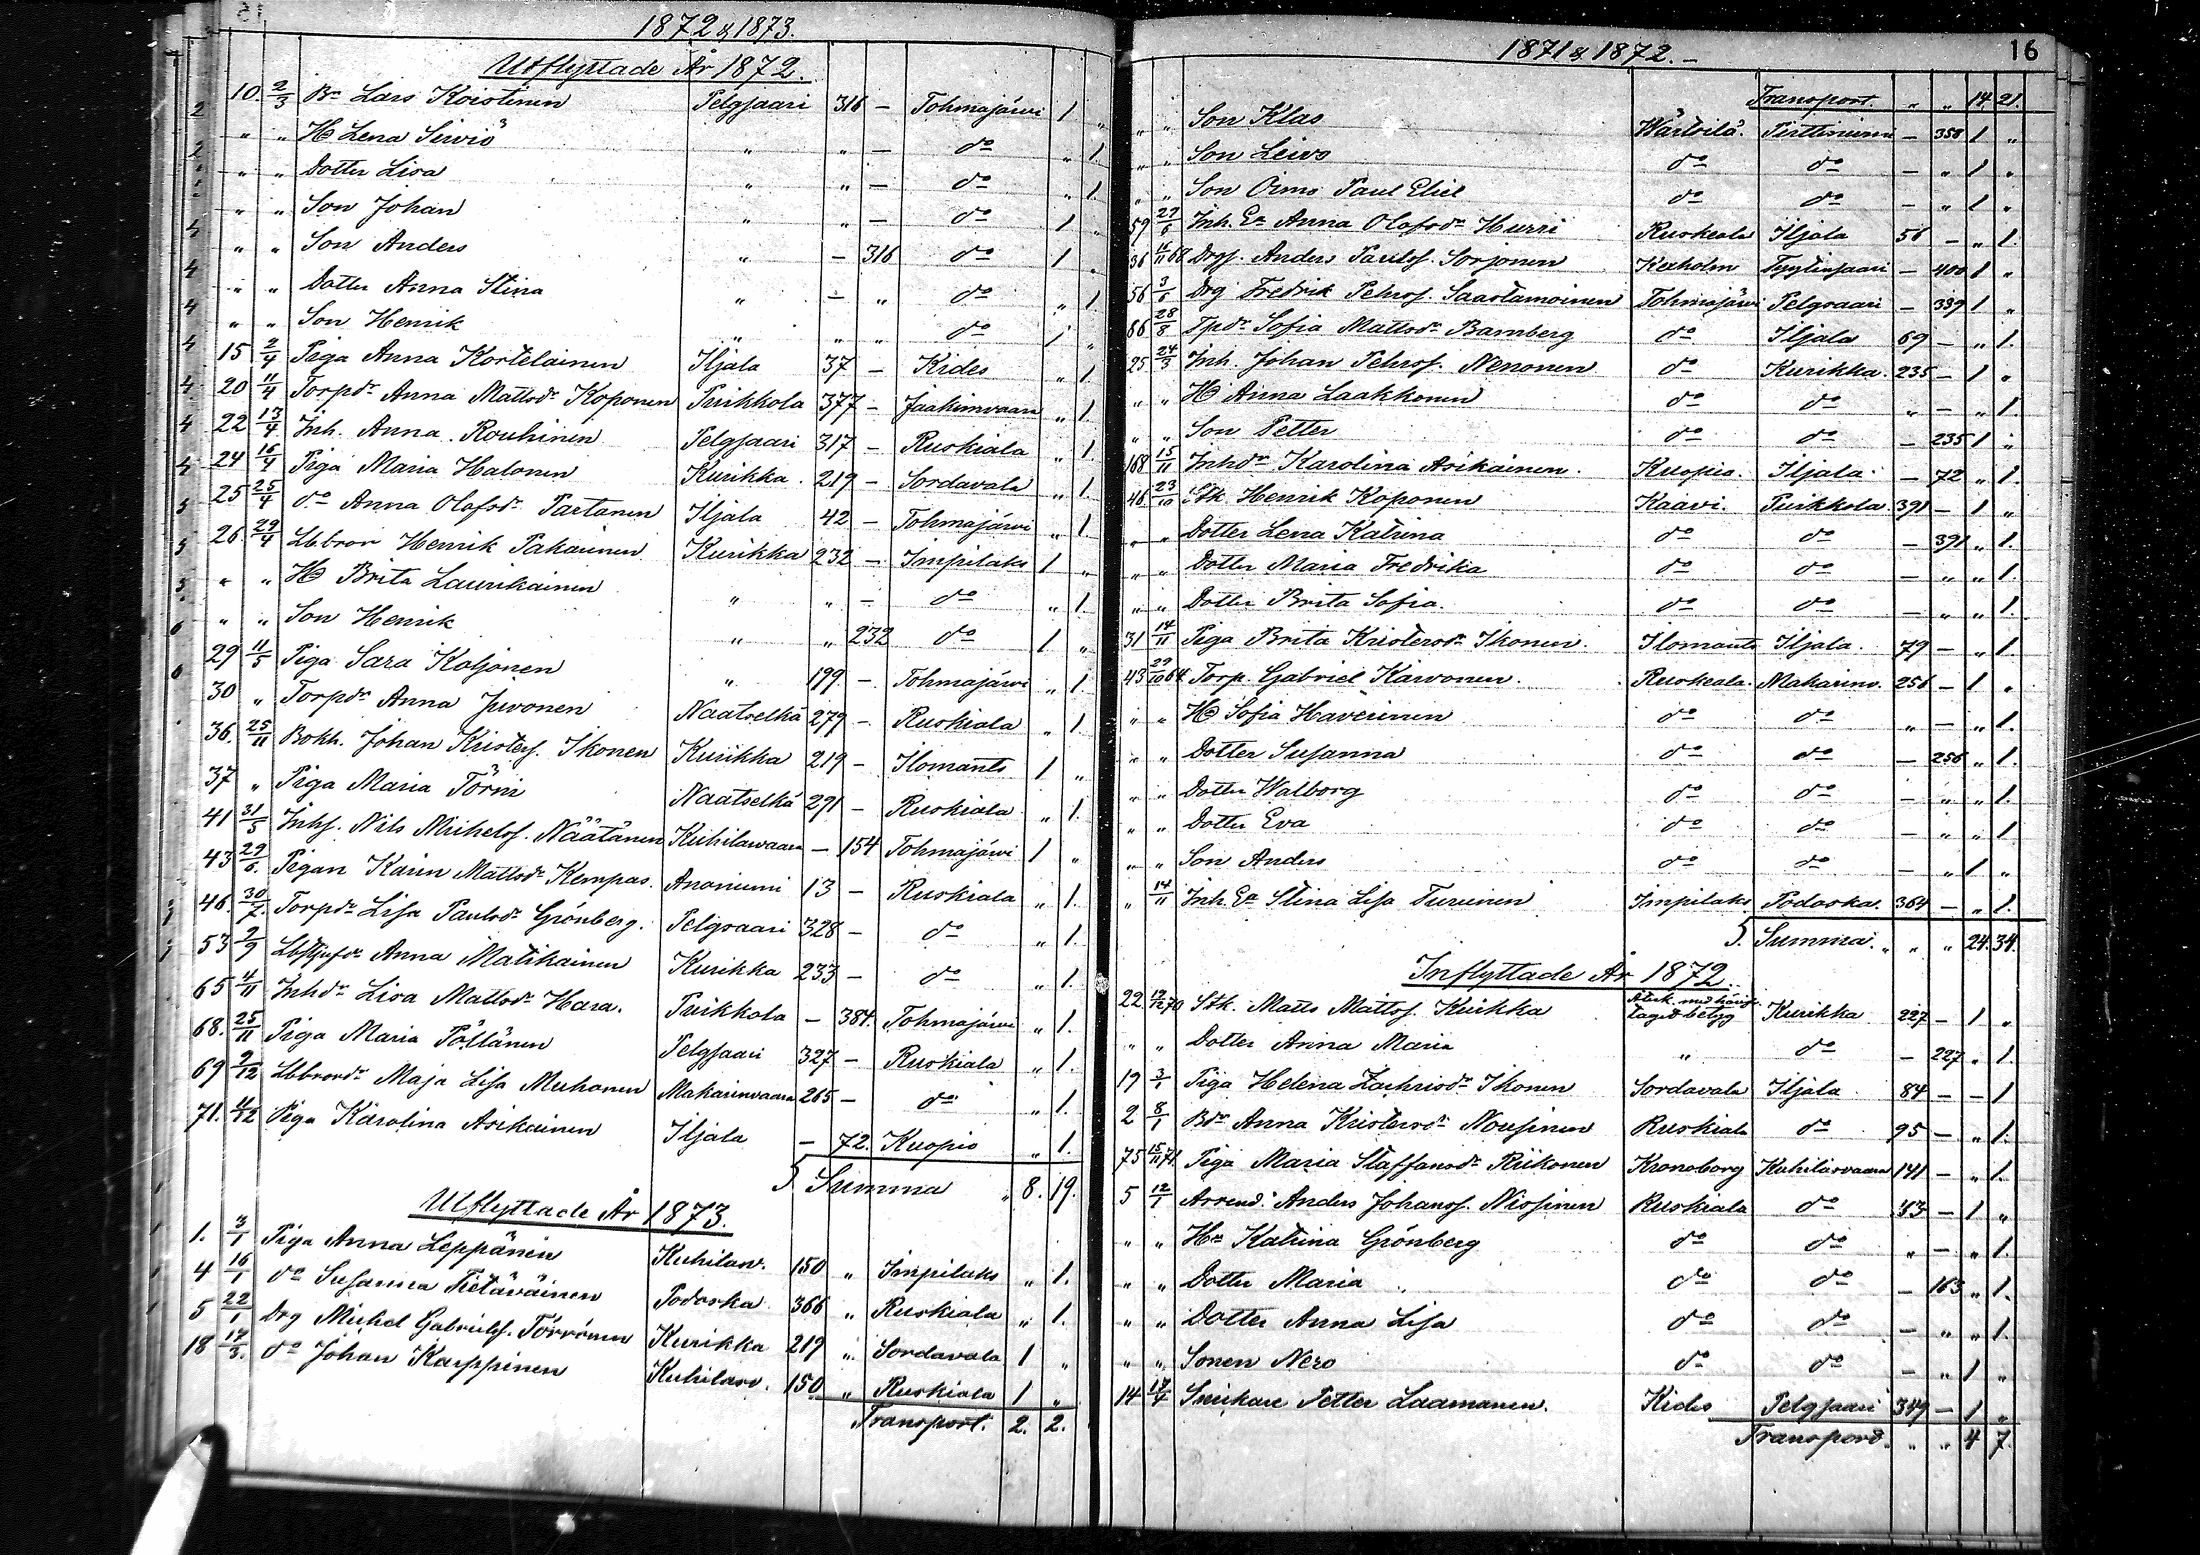 1872 & 1873.
Utflyttade År 1872.
10. 2/3 Bn Lars Koistinen Pelgjaari 316 — Tohmajärvi 1 „
„ „ H Lena Sirviö „ „ — do „ 1.
„ „ Dotter Lisa „ „ — do „ 1.
„ „ Son Johan „ „ — do 1 „
„ „ Son Anders „ — 316 do 1 „
„ „ Dotter Anna Stina „ — „ do „ 1.
„ „ Son Henrik „ „ „ do 1 „
15 2/4 Piga Anna Kortelainen Iljala 37 — Kides „ 1.
20 11/4 Torpdr Anna Mattsdr Koponen Puikkola 377 — Jaakimvaara „ 1.
22 13/4 Inh. Anna Rouhinen Pelgjaari 317 — Ruskiala „ 1.
24 16/4 Piga Maria Halonen Kurikka 219 — Sordavala „ 1.
25 25/4 do Anna Olofsdr Partanen Iljala 42 — Tohmajärvi „ 1
26 29/4 Lbbror Henrik Pakarinen Kurikka 232 — Impilaks 1 „
„ „ H Brita Laurikainen „ „ — do „ 1.
„ „ Son Henrik „ „ 232 do 1 „
29 11/5 Piga Sara Koljonen „ 199 — Tohmajärvi „ 1.
30 „ Torpdr Anna Juvonen Naatselkä 279 — Ruskiala „ 1.
36. 25/11 Bokh. Johan Kristers. Ikonen Kurikka 219 — Ilomants 1 „
37 „ Piga Maria Törni Naatselkä 291 — Ruskiala „ 1.
41 31/5 Inhs. Nils Michelss. Näätänen Kuhilavaara — 154 Tohmajärvi 1 „
43 29/6. Pigan Karin Mattsdr Kempas. Anoniemi 13 — Ruskiala „ 1.
46. 30/7. Torpdr Lisa Paulsdr Grönberg. Pelgjaari 328 — do „ 1.
53 2/9 Anna Matikainen Kurikka 233 — do „ 1.
65 4/11 Inhdr Lisa Mattsdr Hara. Puikkola — 384. Tohmajärvi „ 1.
68. 25/11 Piga Maria Pöllänen Pelgjaari 327 — Ruskiala „ 1.
69 2/12 Lbbrordr Maja Lisa Muhonen Makarinvaara 265 — do „ 1.
71. 4/12 Piga Karolina Asikainen Iljala — 72. Kuopio „ 1.
S. Summa „ 8. 19.
Utflyttade År 1873.
1. 3/1 Piga Anna Leppänen Kuhilav. 150 „ Impilaks „ 1.
4 16/1 do Susanna Tietäväinen Podoska 366 „ Ruskiala „ 1.
5 22/1 Drg Michel Gabrielss. Törrönen Kurikka 219 „ Sordavala 1 „
18 17/3. do Johan Karppinen Kuhilav. 150 „ Ruskiala 1 „
Transport. 2. 2.
1871 & 1872. —
16
Transport. „ „ 14 21.
„ „ Son Klas Wärtsilä. Pirttiniemi — 358 1 „
„ „ Son Leivo do do — „ 1 „
„ „ Son Oimo Paul Eliel do do — „ 1 „
59 27/6 Inh. Ea Anna Olofsdr Hurri Ruskeala Iljala 56 — „ 1.
36 16/11 68 Drgs. Anders Paulss. Sorjonen Kexholm — 400 1 „
56 3/6 Drg Fredrik Pehrss. Saastamoinen Tohmajärvi Pelgjaari — 339 1 „
66 28/8 Tpdr Sofia Mattsdr Bamberg do Iljala 69 — „ 1.
25 24/3 Inh. Johan Pehrss. Nenonen do Kurikka. 235 — 1 „
„ „ H Anna Laakkonen do do „ — „ 1.
„ „ Son Petter do do — 235 1 „
168 15/11 Inhdr Karolina Asikainen. Kuopio. Iljala. — 72 „ 1.
46 23/10 Stk Henrik Koponen Kaavi. Puikkola. 391 — 1 „
„ „ Dotter Lena Katrina do do — 391 „ 1.
„ „ Dotter Maria Fredrika do do — „ „ 1.
„ „ Dotter Brita Sofia. do do — „ „ 1.
31 14/11 Piga Brita Kristersdr Ikonen. Ilomants Iljala. 79 — „ 1.
43 29/10 64. Torp. Gabriel Karvonen. Ruskeala. Makarinv. 256 — 1 „
„ „ H Sofia Haverinen do do „ — „ 1.
„ „ Dotter Susanna do do — 256 „ 1.
„ „ Dotter Walborg do do — „ „ 1.
„ „ Dotter Eva do do — „ „ 1.
„ „ Son Anders do do — „ 1 „
„ 14/11 Inh. Ea Stina Lisa Turunen Impilaks Podoska. 364 — „ 1.
S. Summa. „ „ „ 24. 34.
Inflyttade År 1872.
22. 19/12 70 Stk. Matts Mattss. Kuikka taget betyg Kurikka 227 — 1 „
„ „ Dotter Anna Maria „ do — 227 „ 1.
19 3/1 Piga Helena Zachrisdr Ikonen Sordavala Iljala 84 — — 1
2 8/1 Bdr Anna Kristersdr Nousinen Ruskiala do 95 — „ 1.
75 15/11 71. Piga Maria Staffansdr Riikonen Kronoborg Kuhilavaara 141 — „ 1.
5 12/1 Arrend. Anders Johanss. Nissinen Ruskiala do — 1 „
„ „ Ha Katrina Grönberg do do „ — „ 1.
„ „ Dotter Maria do do — 163 „ 1.
„ „ Dotter Anna Lisa do do — „ „ 1.
„ „ Sonen Nero do do — „ 1 „
14 17/4 Snickare Petter Laamanen. Kides Pelgjaari 349 — 1 „
Transport. „ „ 4 7.